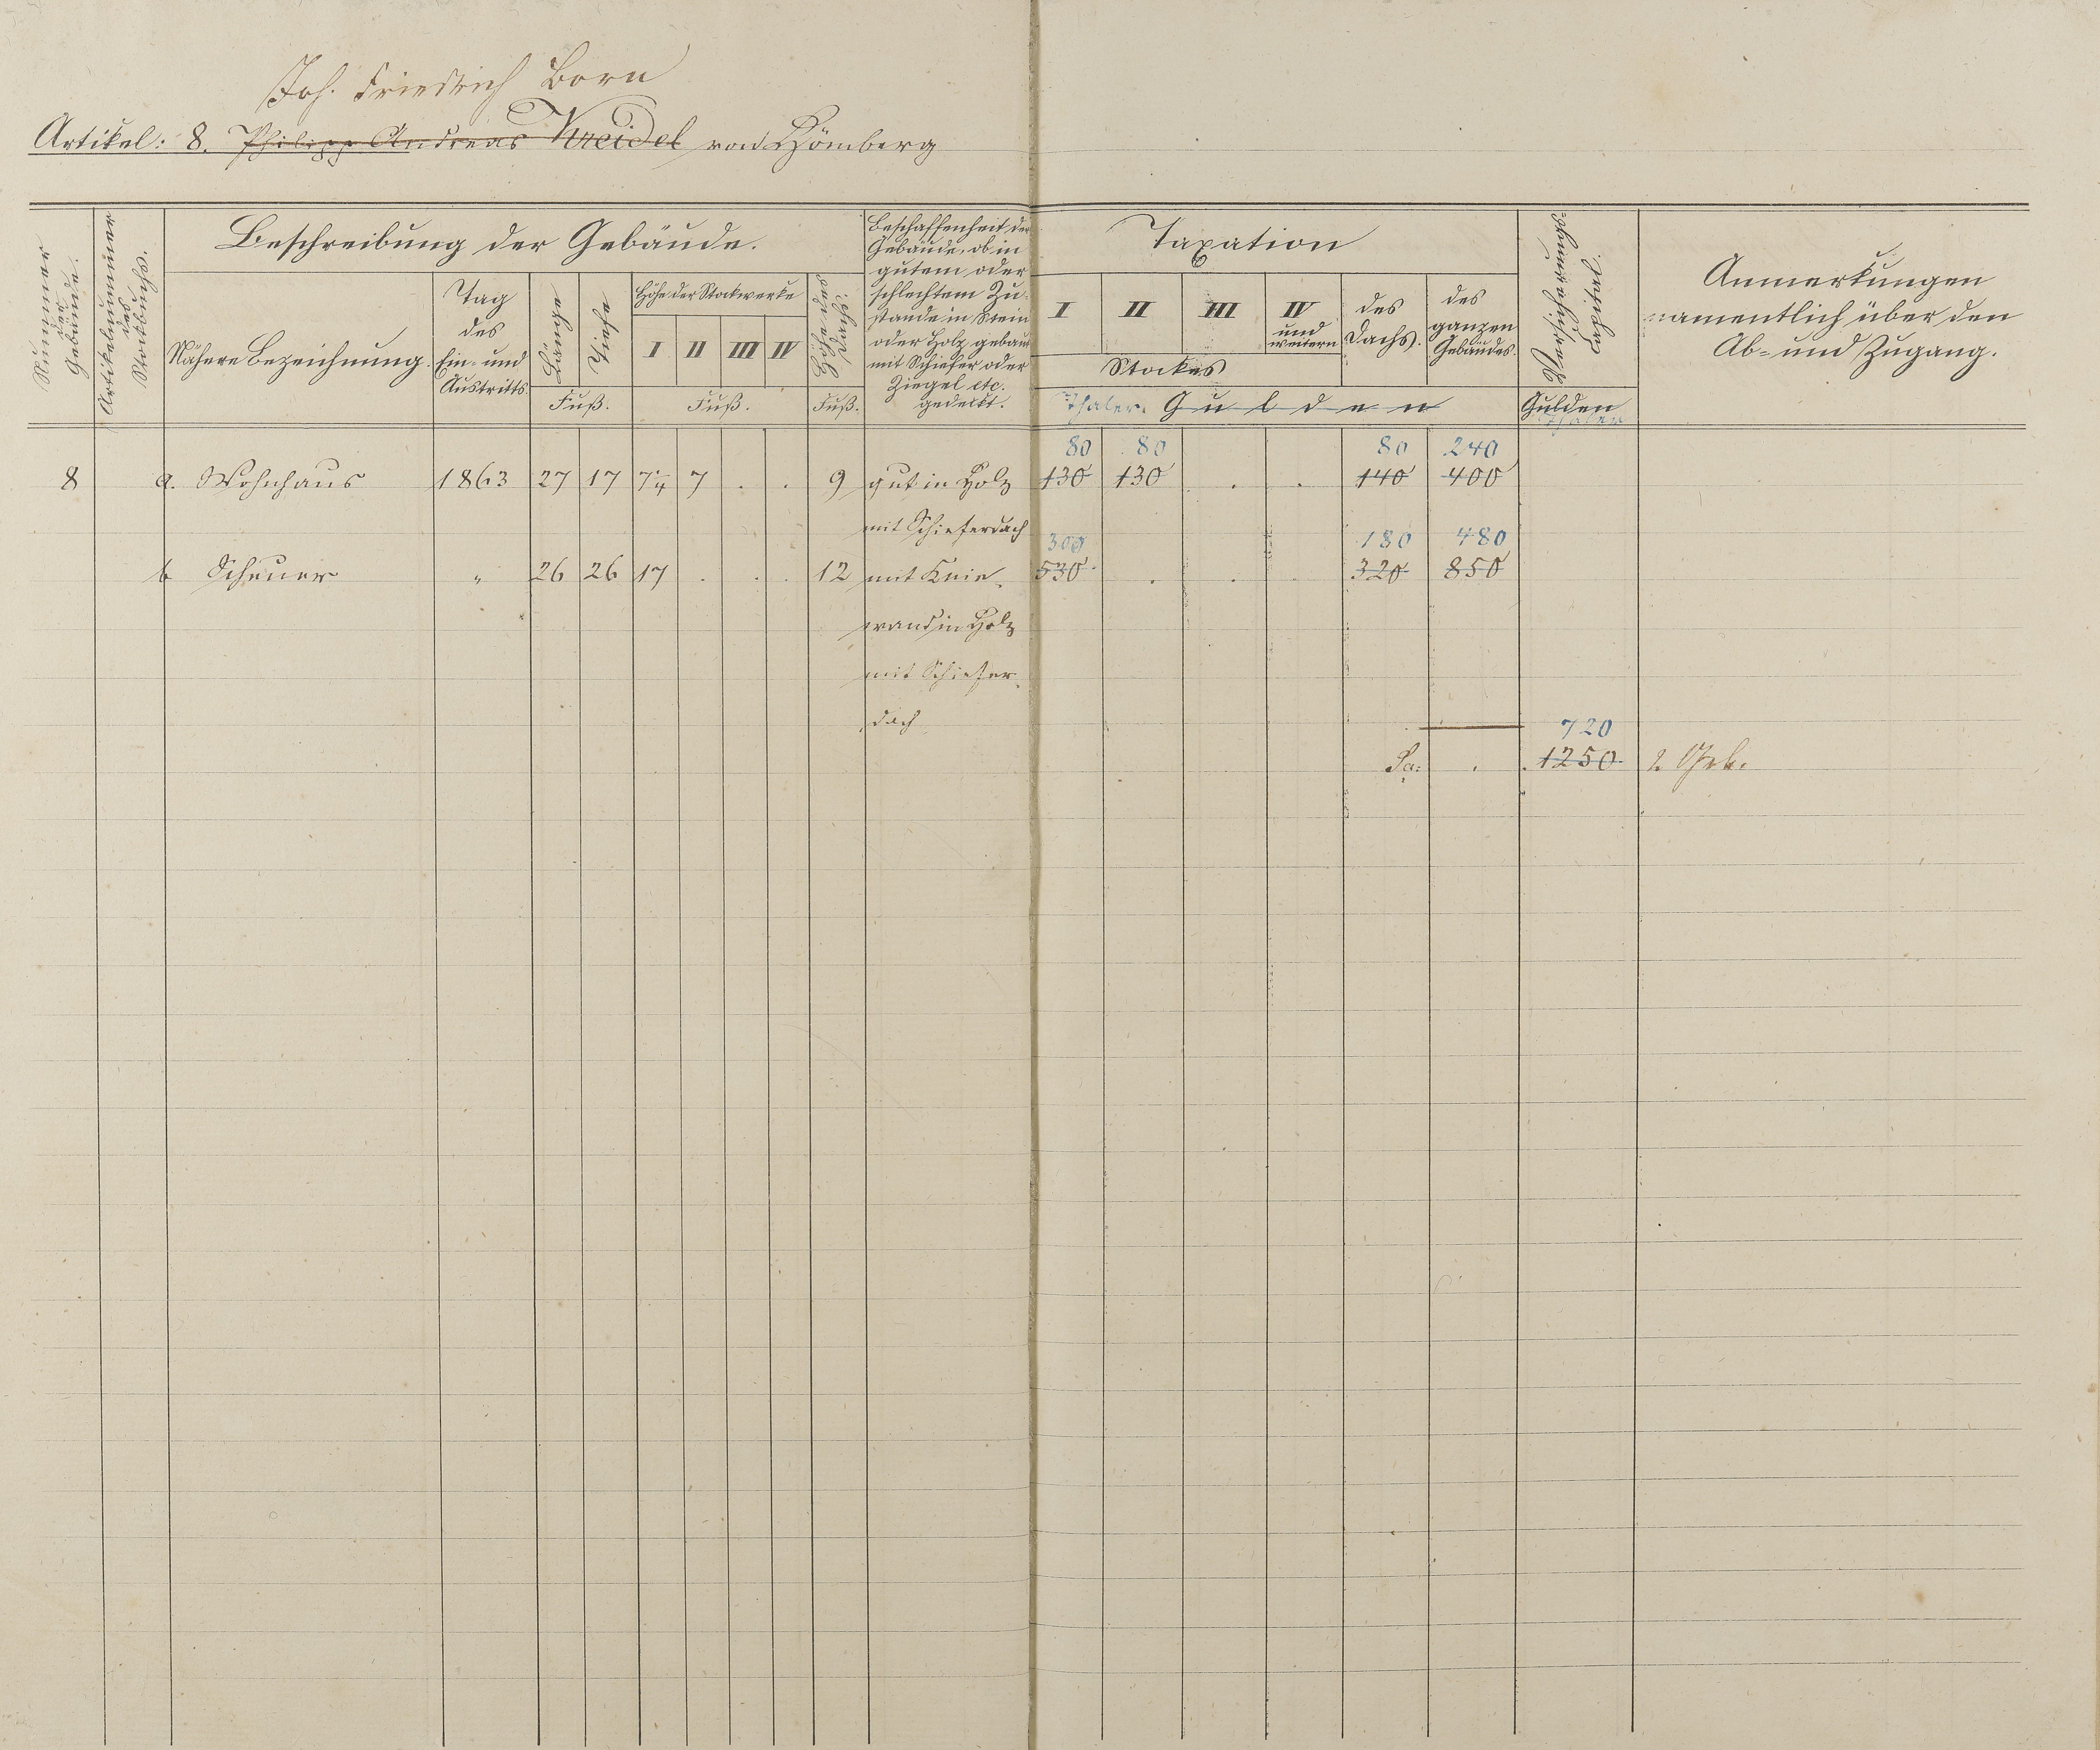 Joh. Friedrich Born
Artikel: 8. Philipp Andreas Kreidel von Hömberg
Nummer der Gebäude.
Artikelnummer des Stockbuchs.
Beschreibung der Gebäude.
Nähere Bezeichnung.
Tag
des
Ein- und
Austritts
Länge
Tiefe
Fuß.
Höhe der Stockwerke
I II III IV
Fuß.
Höhe des Dachs.
Fuß.
Beschaffenheit der
Gebäude, ob in
gutem oder
schlechtem Zu-
stande in Stein
oder Holz gebaut
mit Schiefer oder
Ziegel etc.
gedeckt.
Taxation
I II III IV
und
weitern
Stockes
des
Dachs.
des
ganzen
Gebäudes.
Thaler. Gulden
Gulden
Thaler
Anmerkungen
namentlich über den
Ab- und Zugang.
80 80 80 240
8 a. Wohnhaus 1863 27 17 7¼ 7 . . 9 gut in Holz 130 130 . . 140 400
mit Schieferdach
300 180 480
b Scheuer " 26 26 17 . . . 12 mit Knie- 530 . . . 320 850
wand in Holz
mit Schiefer-
dach
720
Sa: . 1250 2 Geb.